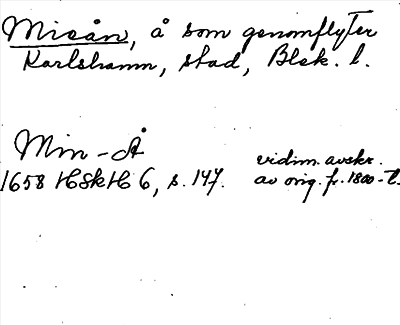 Mieån, å som genomflyter
Karlshamn, stad, Blek. l.
Min-Å
1658 HSkH 6, s. 147. vidim. avskr.
av orig. fr. 1800-t.